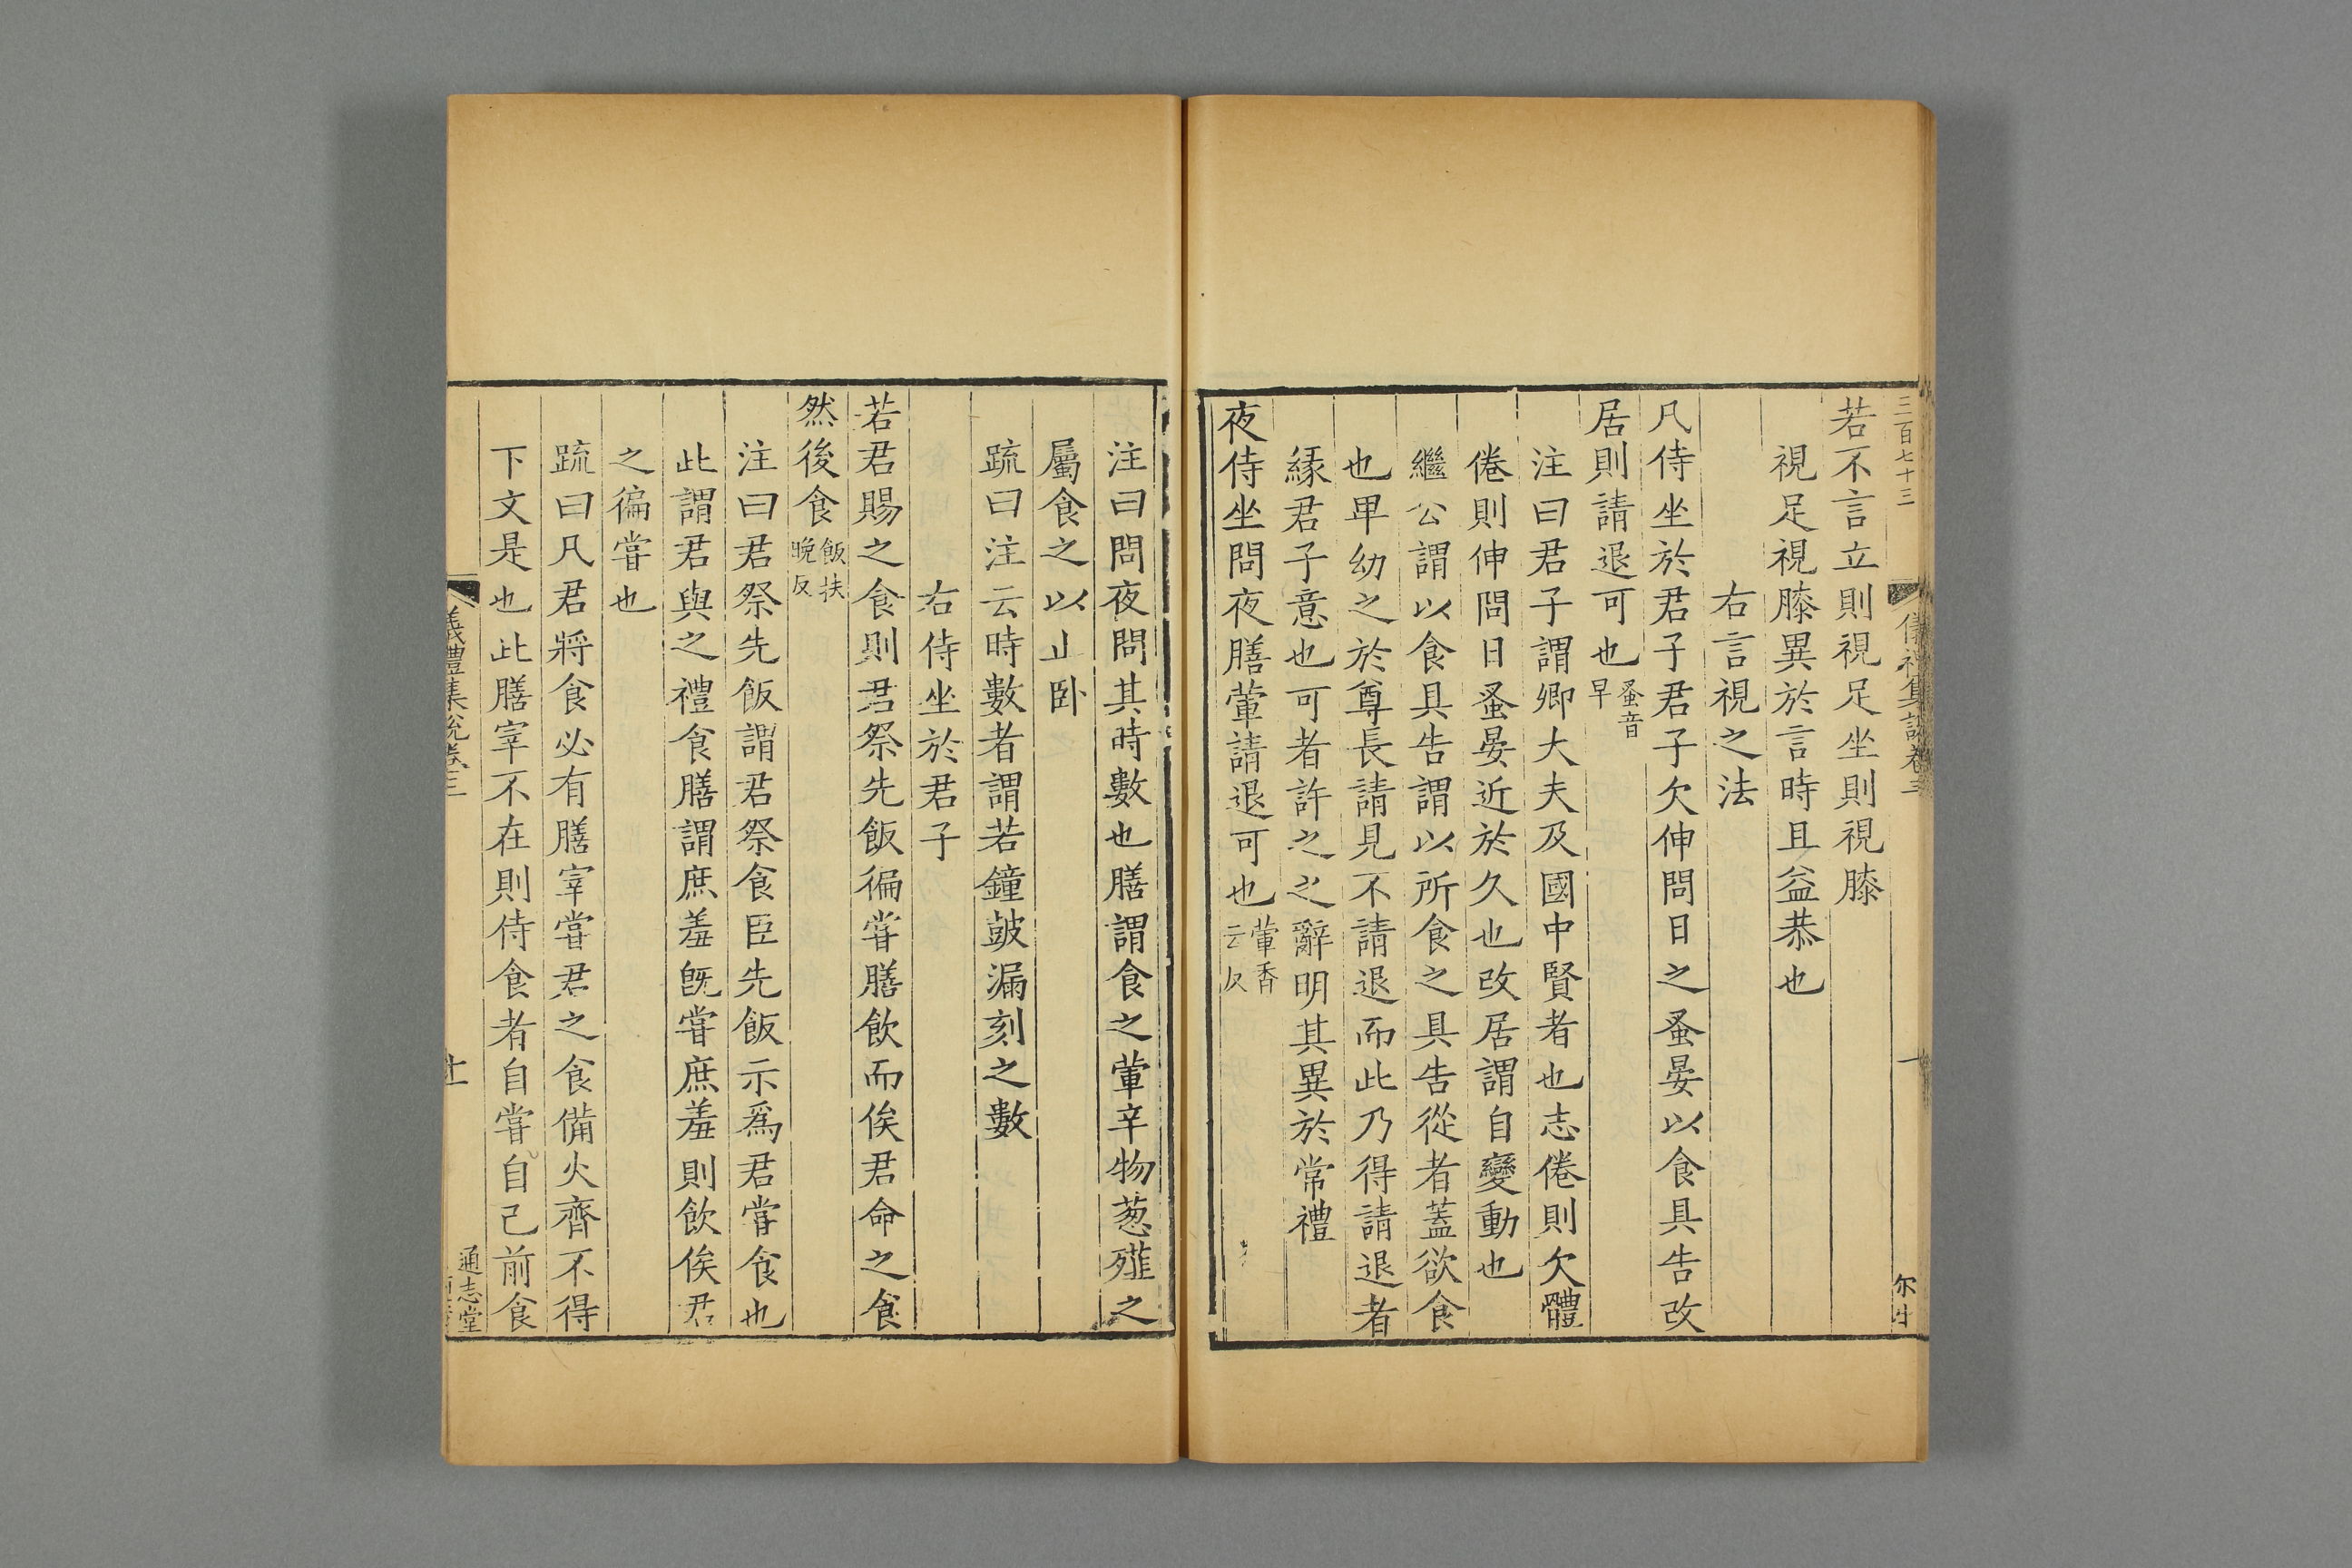 三百七十三
若不言立則視足坐則視膝
視足視膝異於言時且益恭也
右言視之法
凡侍坐於君子君子欠伸問日之蚤晏以食具告改
居則請退可也蚤音早
注曰君子謂卿大夫及國中賢者也志倦則欠體
倦則伸問日蚤晏近於久也改居謂自變動也
繼公謂以食具告謂以所食之具告從者蓋欲食
也卑幼之於尊長請見不請退而此乃得請退者
緣君子意也可者許之之辭明其異於常禮
夜侍坐問夜膳葷請退可也葷香云反
注曰問夜問其時數也膳謂食之葷辛物葱薤之
屬食之以止卧
疏曰注云時數者謂若鐘鼓漏刻之數
右侍坐於君子
若君賜之食則君祭先飯徧嘗膳飲而俟君命之食
然後食飯扶晚反
注曰君祭先飯謂君祭食臣先飯示爲君嘗食也
此謂君與之禮食膳謂庶羞旣嘗庶羞則飲俟君
之徧嘗也
疏曰凡君將食必有膳宰嘗君之食備火齊不得
下文是也此膳宰不在則侍食者自嘗自己前食
儀禮集說卷三
通志堂